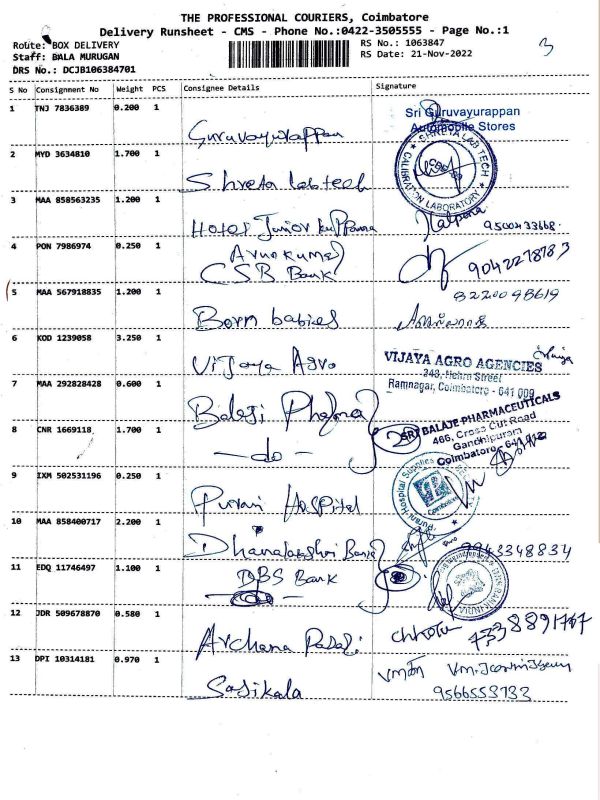 THE PROFESSIONAL COURIERS, Coimbatore
Delivery Runsheet - CMS - Phone No.:0422-3505555 - Page No.:1
Route: BOX DELIVERY
RS No.: 1063847
3
Staff: BALA MURUGAN
RS Date: 21-Nov-2022
DRS No.: DCJB106384701
S No Consignment No Weight PCS Consignee Details Signature
1 TNJ 7836389 0.200 1
Sri Guruvayurappan
Automobile Stores
Guruvayurappan
2 MYD 3634810 1.700 1
SHREYA LAB TECH
CALIBRATION LABORATORY
Shreya lab tech
3 MAA 858563235 1.200 1
Hotel Junior Kuppanna
Kalpana 9500433668
4 PON 7986974 0.250 1
Arunkumar
CSB Bank
9042278783
5 MAA 567918835 1.200 1
8220098619
Born babies
6 KOD 1239058 3.250 1
Vijaya Agro
VIJAYA AGRO AGENCIES
248, Nehru Street
Ramnagar, Coimbatore - 641 009
7 MAA 292828428 0.600 1
Balaji Pharma
2
SRI BALAJE PHARMACEUTICALS
466, Cross Cut Road
Gandhipuram
Coimbatore - 641012
8 CNR 1669118 1.700 1
-do-
9 IXM 502531196 0.250 1
Purani Hospital
Purani Hospital Supplies
Coimbatore
10 MAA 858400717 2.200 1
Dhanalakshmi Bank
9943348834
11 EDQ 11746497 1.100 1
DBS Bank
DBS BANK INDIA
12 JDR 509678870 0.580 1
Archana Padai
Chhotu 7338891767
13 DPI 10314181 0.970 1
Sasikala
9566553733